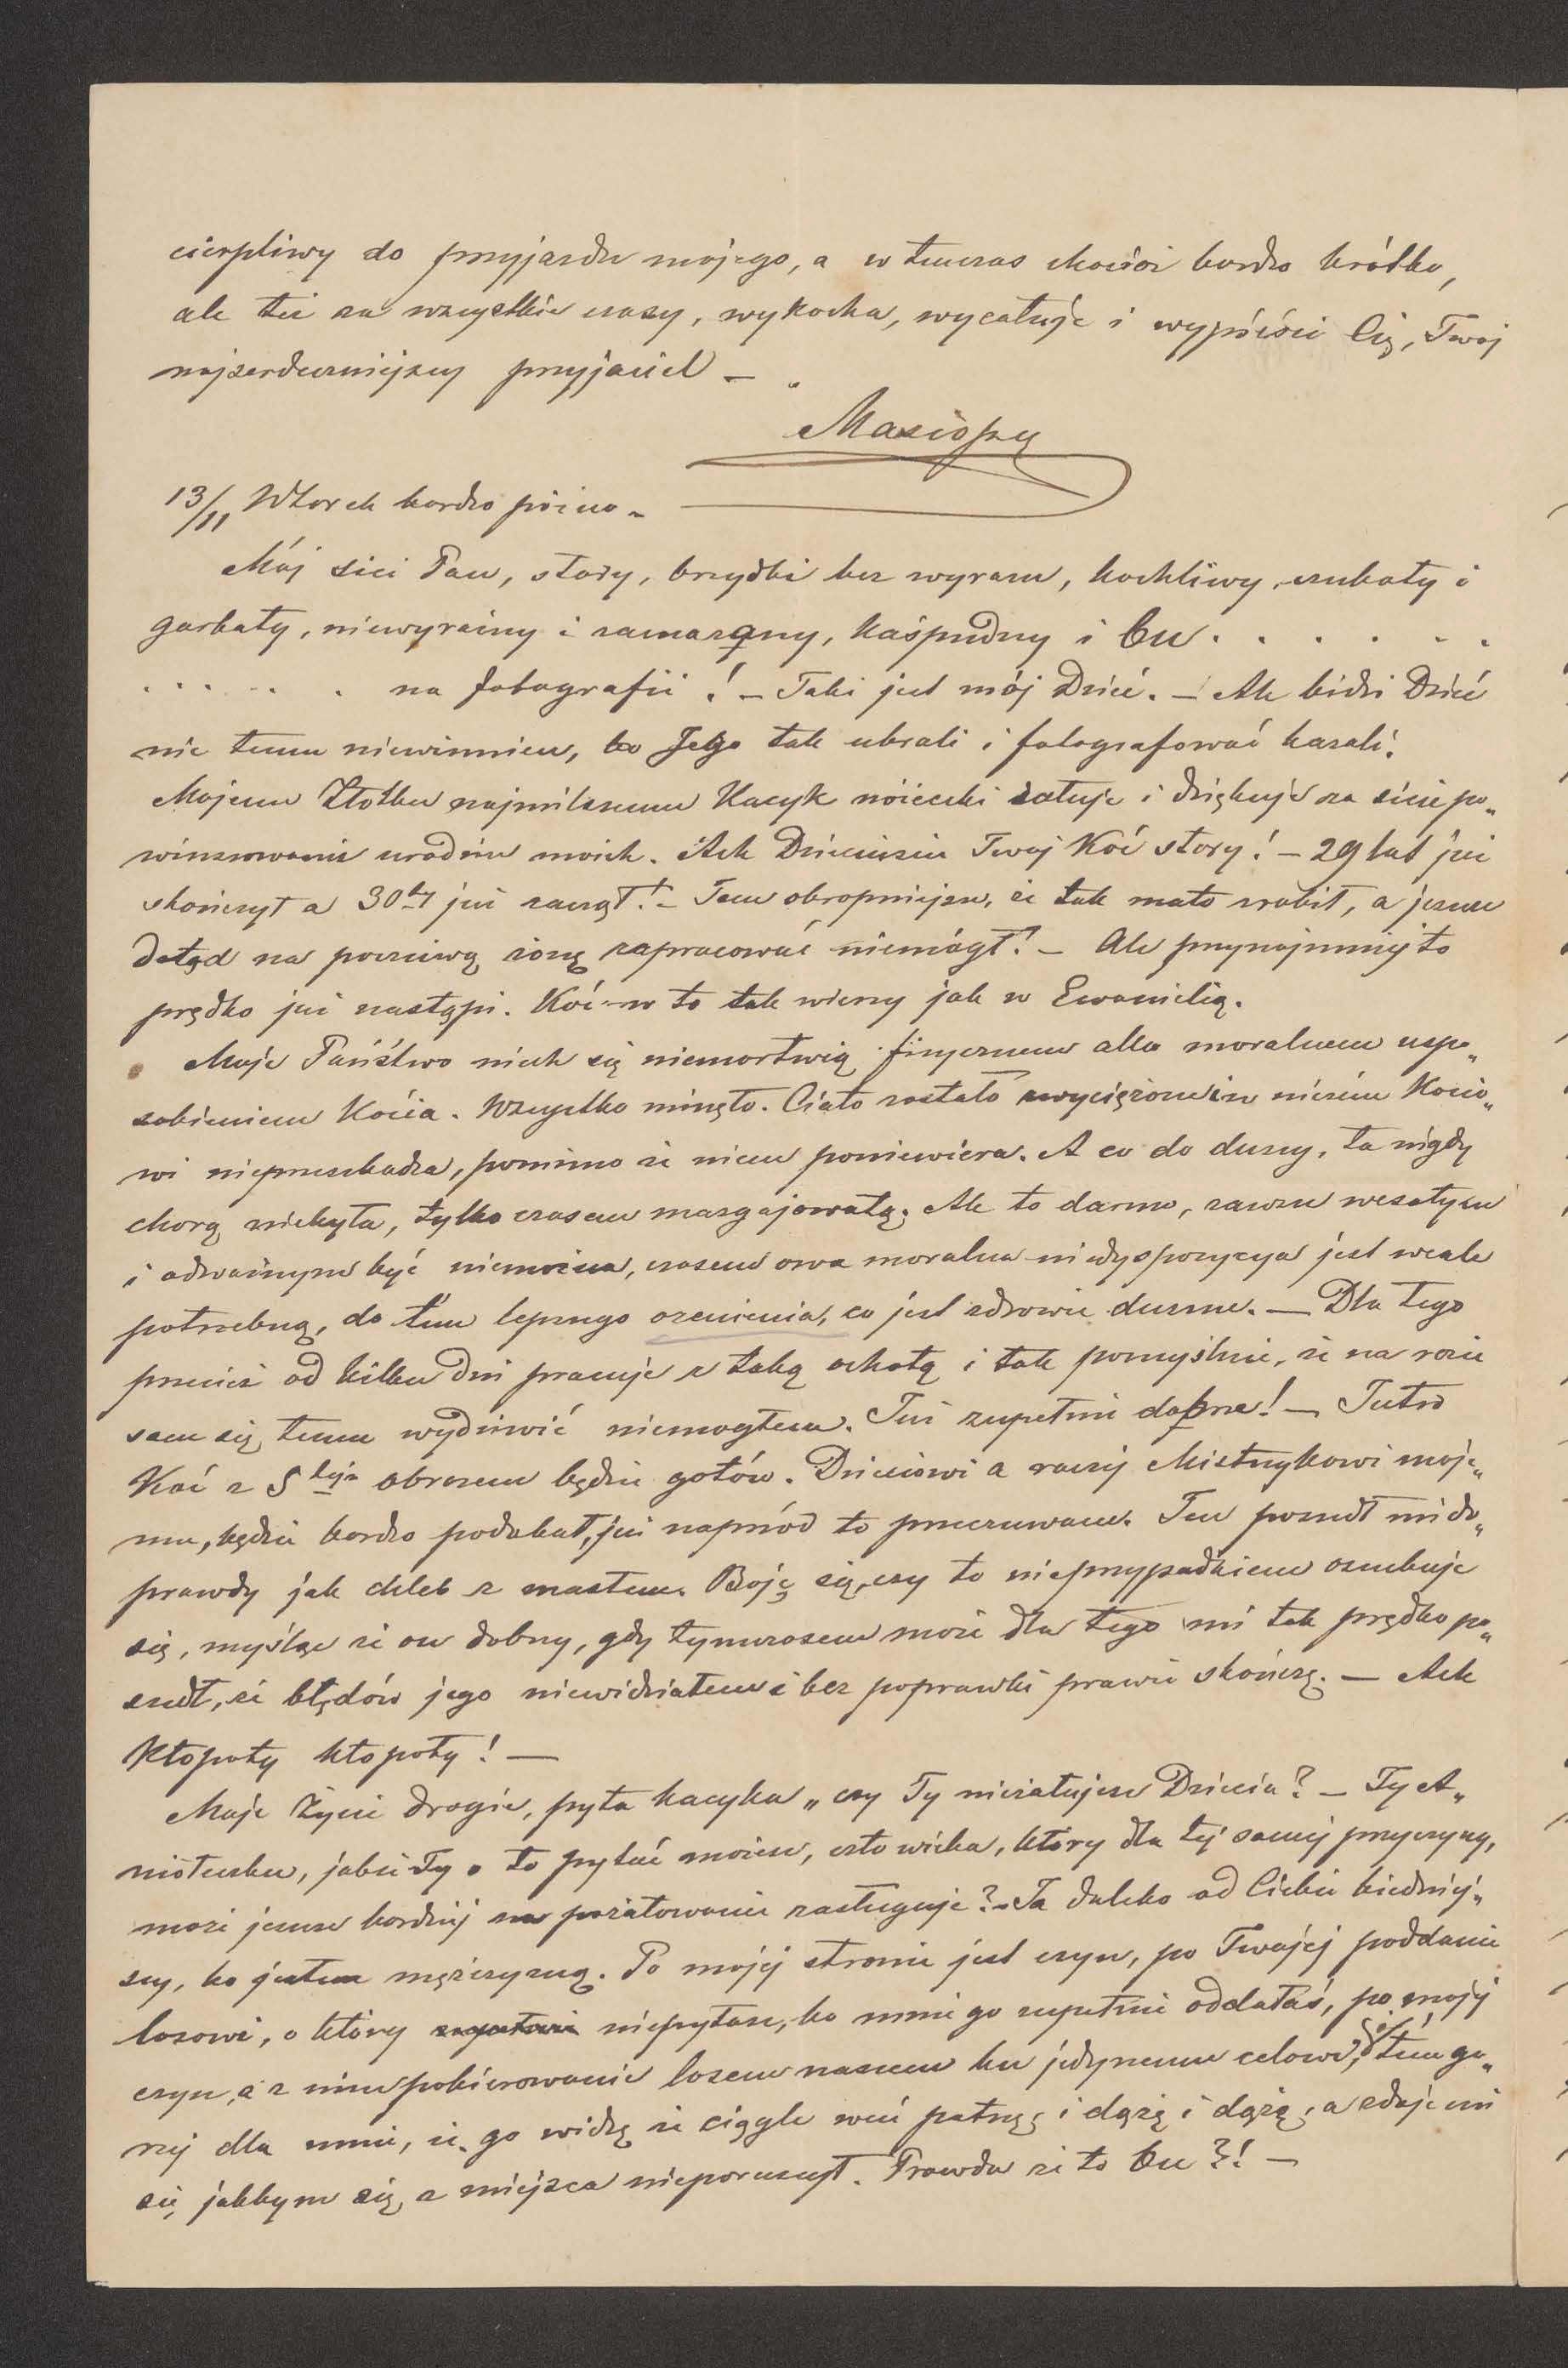 cierpliwy do przyjazdu mojego, a w tenczas chociaż bardzo krótko,
ale też za wszystkie czasy, wykocha, wycałuje i wypieści Cię, Twój
najserdeczniejszy przyjaciel —
13/11 Wtorek bardzo późno –
Mój sici Pan, stary, brzydki bez wyrazu, kochliwy, czubaty i
garbaty, niewyraźny i zamazany, kaśpudny i bu . . . . . . .
. . . . . . na fotografii! – Taki jest mój Dzieć. – Ale bidzi Dzieć
nic temu niewinnien, bo Jego tak ubrali i fotografować kazali.
Mojemu Złotku najmilszemu Kacyk nóżeczki całuje i dziękuje za sicie po„
winszowanie urodzin moich. Ach Dzieciusiu Twój Koć stary! – 29 lat już
skończył a 30ty już zaczął! – Tem okropniejsze, że tak mało zrobił, a jeszcze
dotąd na poczciwą żonę zapracować niemógł! – Ale przynajmniej to
prędko już nastąpi. Koć w to tak wierzy jak w Ewanielią.
Moje Państwo niech się niemartwią fizycznem albo moralnem uspo„
sobieniem Kocia. Wszystko minęło. Ciało zostało zwyciężone i w niczem Kocio„
wi nieprzeszkadza, pomimo że niem poniewiera. A co do duszy, ta nigdy
chorą niebyła, tylko czasem mazgajowatą. Ale to darmo, zawsze wesołym
i odważnym być niemożna, czasem owa moralna niedyspozycya jest wcale
potrzebną, do tem lepszego ocenienia, co jest zdrowie duszne. — Dla tego
przecież od kilku dni pracuje z taką ochotą i tak pomyślnie, że na razie
sam się temu wydziwić niemogłem. Tuż zupełnie dobrze! — Jutro
Koć z 5tym obrazem będzie gotów. Dzieciowi a raczej Mistrzykowi moje„
mu, będzie bardzo podobał, już naprzód to przeczuwam. Ten poszedł mi do„
prawdy jak chleb z masłem. Boję się, czy to nieprzypadkiem oszukuje
się, myśląc że on dobry, gdy tymczasem może dla tego mi tak prędko po„
szedł, że błędów jego niewidziałem i bez poprawki prawie skończę. — Ach
Kłopoty kłopoty! —
Moje Życie drogie, pyta kacyka „czy Ty nieżałujesz Dziecia? – Ty A„
niołeczku, jakże Ty o to pytać możesz, człowieka, który dla tej samej przyczyny,
może jeszcze bardziej na pożałowanie zasługuje? – Ja daleko od Ciebie biedniej„
szy, bo jestem mężczyzną. Po mojej stronie jest czyn, po Twojej poddanie
losowi, o który niepytasz, bo mnie go zupełnie oddałaś, po mojej
czyn, a z nim pokierowanie losem naszem ku jedynemu celowi, tem go„
rzej dla mnie, że go widzę że ciągle weń patrzę i dążę i dążę, a zdaje mi
się, jakbym się z miejsca nieporuszył. Prawda że to bu?! —